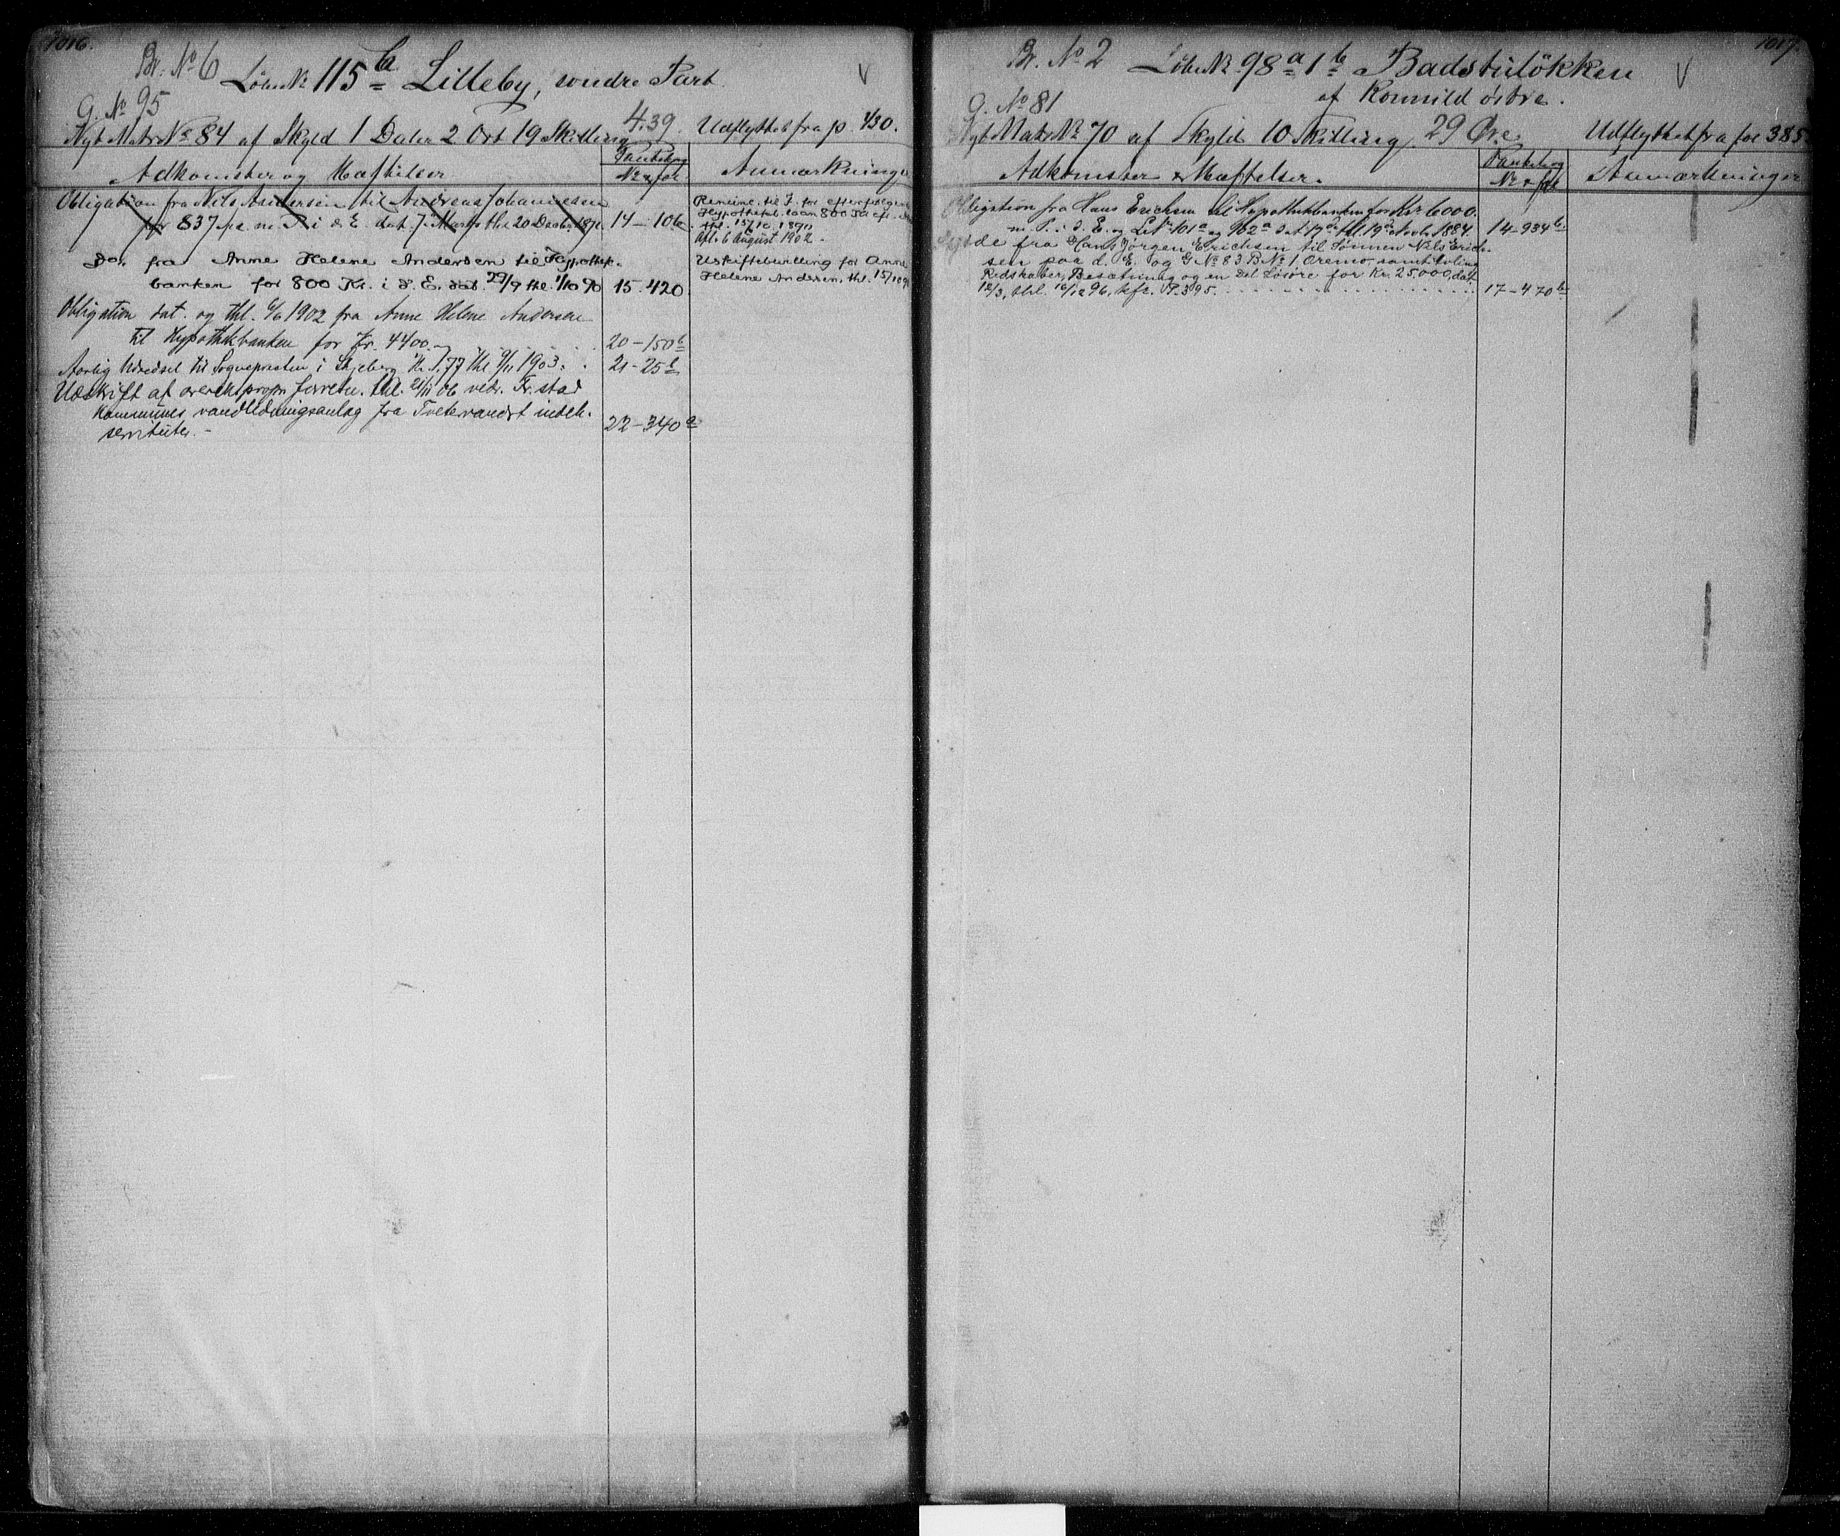 1016.
Br. No 6
Løbe No 115 b Lilleby, søndre Part
G. No 95
Nyt Matr No 84 af Skyld 1 Daler 2 Ort 19 Skilling
4.39.
Udflyttet fra p. 430.
Adkomster og Hæftelser
Pantebog
No & fol.
Anmærkninger
Obligation fra Nils Andersen til Andreas Johannesen
for 837 m. P. i d. E. dat. 7 Marts thl. 20 Decbr
14 – 106
Do. fra Anne Helene Andersen til Hypothek-
banken for 800 Kr. i d. E. dat. 29/9 thl. 1/10 90
15. 420.
Obligation dat. og thl. 6/6 1902 fra Anne Helene Andersen
til Hypothekbanken for Kr. 4400.
20–150 b
Aarlig Udredsel til Sognepresten i Skjeberg thl. 1903.
21–25 b
Udskrift af overexpropr. forretn. thl. 21/11 06 vedr. Fr.stad
kommunes vandledningsanlæg fra Tvetervandet indeh.
servituter.–
22–340 a
for efterfølgende
Hypothekb. laan 800
thl. 15/10 1890
Afl. 6 August 1902.
Uskiftebevilling for Anne
Helene Andersen, thl. 15/
1017.
Br. No 2
Løbe No 98 a 1 b Badstuløkken
af Romnild østre.
G. No 81
Nyt Matr No 70 af Skyld 10 Skilling
29 Øre.
Udflyttet fra fol 385
Adkomster & Hæftelser.
Pantebog
No & fol
Anmærkninger
Obligation fra Hans Erichsen til Hypothekbanken for Kr 6000.
m. P. i d. E. og L. No 101 a og 102 a dat 17 de thl. 19 de Novbr. 1884
14–934 b
Skjøde fra Hans Jørgen Erichsen til Sønnen Nils Erich-
sen paa d. E. og G No 83 B No 1, Oremo, samt Avling
Redskaber, Besætning og en Del Løsøre for Kr. 25000, dat.
12/3, thl. 16/12 96, kfr. P. 395.
17–470 b